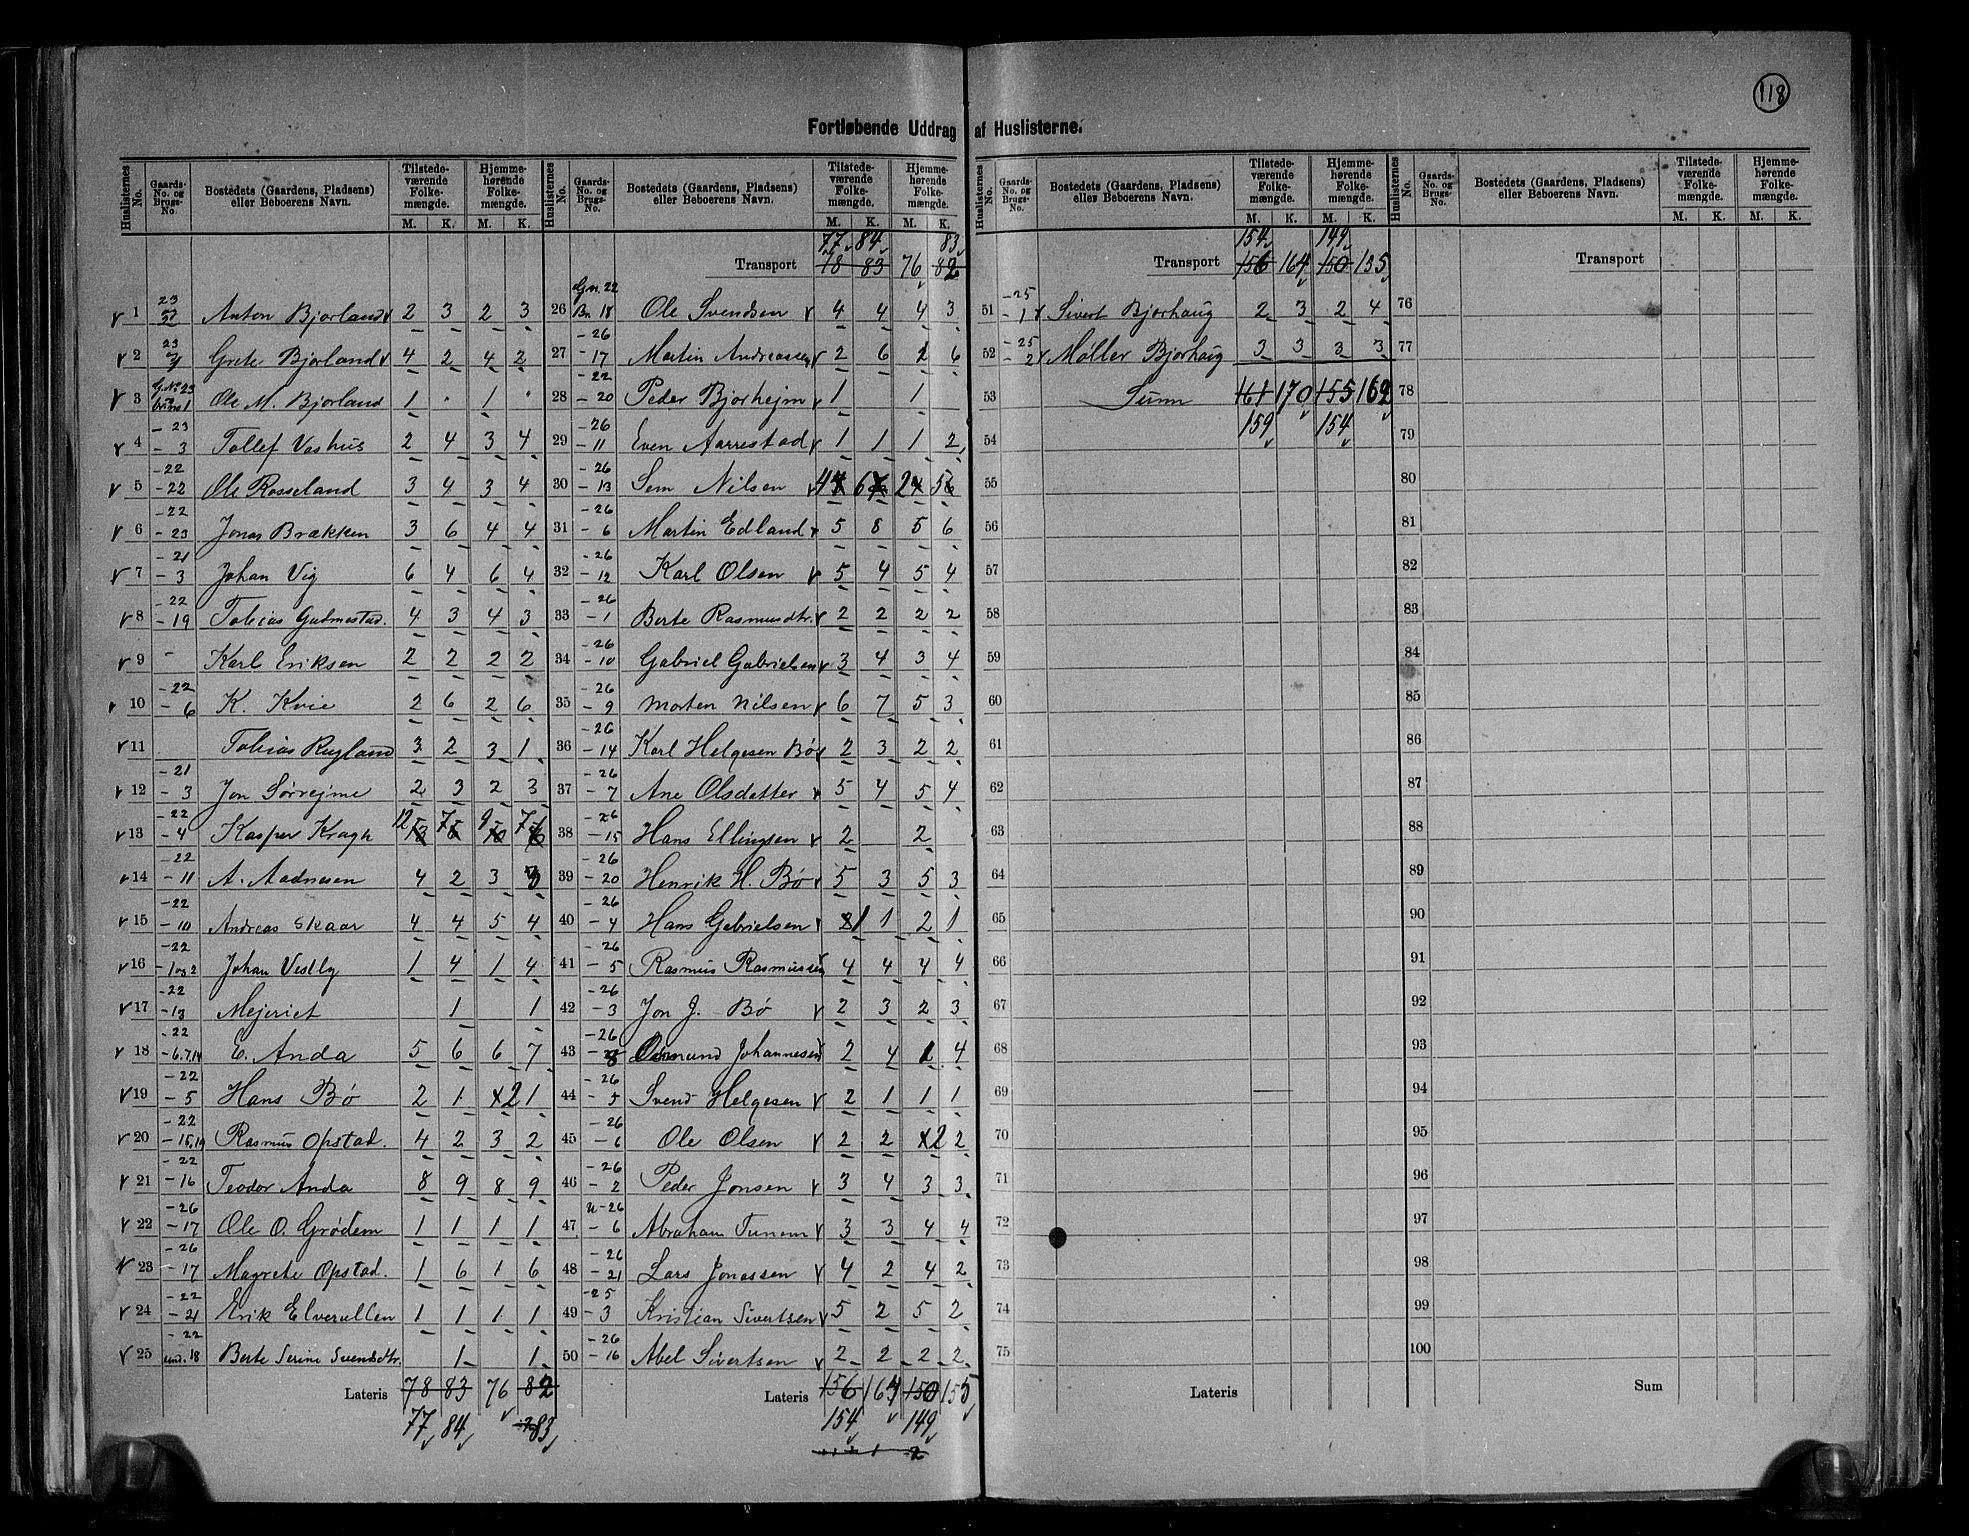 118
Fortløbende Uddrag af Huslisterne.
Huslisternes No. | Gaards-No. og Brugs-No. | Bostedets (Gaardens, Pladsens) eller Beboerens Navn. | Tilstedeværende Folkemængde. M. K. | Hjemmehørende Folkemængde. M. K.
1 23 Anton Bjorland 2 3 2 3
2 23 Grete Bjorland 4 2 4 2
3 G.No 23 Ole M. Bjorland 1 " 1 "
4 - 23 - 3 Tollef Vashus 2 4 3 4
5 - 22 - 22 Ole Rosseland 3 4 3 4
6 - 22 - 23 Jonas Brækken 3 6 4 4
7 - 21 - 3 Johan Vig 6 4 6 4
8 - 22 - 19 Tobias Gudmestad. 4 3 4 3
9 - Karl Eriksen 2 2 2 2
10 - 22 - 6 K. Kvie 2 6 2 6
11 Tobias Rugland 3 2 3 1
12 - 21 - 3 Jon Sørrejme 2 3 2 3
13 - 22 - 4 Kasper Kragh 12 7 9 7
14 - 22 - 11 A. Aadnesen 4 2 3 3
15 - 22 - 10 Andreas Skaar 4 4 5 4
16 - 22 - 1 og 2 Johan Vestly 1 4 1 4
17 - 22 - 13 Mejeriet 1 1
18 - 22 - 6.7.14 E. Anda 5 6 6 7
19 - 22 - 5 Hans Bø 2 1 2 1
20 - 22 - 15,19 Rasmus Opstad. 4 2 3 2
21 - 22 - 16 Teodor Anda 8 9 8 9
22 - 26 - 17 Ole O. Grødem 1 1 1 1
23 - 26 - 17 Magrete Opstad. 1 6 1 6
24 - 22 - 21 Erik 1 1 1 1
25 - 22 und. 18 Berte Serine Svendsdtr. 1 1
Lateris 78 83 76 82
77 84 83
Huslisternes No. | Gaards-No. og Brugs-No. | Bostedets (Gaardens, Pladsens) eller Beboerens Navn. | Tilstedeværende Folkemængde. M. K. | Hjemmehørende Folkemængde. M. K.
77 84 83
Transport 78 83 76 82
26 Gn. 22 Bn 18 Ole Svendsen 4 4 4 3
27 - 26 - 17 Martin Andreassen 2 6 2 6
28 - 22 - 20 Peder Bjorhejm 1 1
29 - 26 - 11 Even Aarrestad 1 1 1 2
30 - 26 - 13 Sem Nilsen 4 6 2 5
31 - 26 - 6 Martin Edland 5 8 5 6
32 - 26 - 12 Karl Olsen 5 4 5 4
33 - 26 - 1 Berte Rasmusdtr. 2 2 2 2
34 - 26 - 10 Gabriel Gabrielsen 3 4 3 4
35 - 26 - 9 Morten Nilsen 6 7 5 3
36 - 26 - 14 Karl Helgesen Bø 2 3 2 2
37 - 26 - 7 Ane Olsdatter 5 4 5 4
38 - 26 - 15 Hans Ellingsen 2 2
39 - 26 - 20 Henrik H. Bø 5 3 5 3
40 - 26 - 4 Hans Gabrielsen 1 1 2 1
41 - 26 - 5 Rasmus Rasmussen 4 4 4 4
42 - 26 - 3 Jon J. Bø 2 3 2 3
43 - 26 - 8 Osmund Johannesen 2 4 1 4
44 - 26 - 5 Svend Helgesen 2 1 1 1
45 - 26 - 6 Ole Olsen 2 2 2 2
46 - 26 - 2 Peder Jonsen 3 4 3 3
47 - 26 - 6 Abraham Tunem 3 3 4 4
48 - 26 - 21 Lars Jonassen 4 2 4 2
49 - 25 - 3 Kristian Sivertsen 5 2 5 2
50 - 26 - 16 Abel Sivertsen 2 2 2 2
Lateris 156 164 150 155
154 149
Huslisternes No. | Gaards-No. og Brugs-No. | Bostedets (Gaardens, Pladsens) eller Beboerens Navn. | Tilstedeværende Folkemængde. M. K. | Hjemmehørende Folkemængde. M. K.
154 149
Transport 156 164 150 155
51 - 25 - 1 Sivert Bjorhaug 2 3 2 4
52 - 25 - 2 Møller Bjorhaug 3 3 3 3
53 Sum 161 170 155 162
54 159 154
55
56
57
58
59
60
61
62
63
64
65
66
67
68
69
70
71
72
73
74
75
Lateris
Huslisternes No. | Gaards-No. og Brugs-No. | Bostedets (Gaardens, Pladsens) eller Beboerens Navn. | Tilstedeværende Folkemængde. M. K. | Hjemmehørende Folkemængde. M. K.
Transport
76
77
78
79
80
81
82
83
84
85
86
87
88
89
90
91
92
93
94
95
96
97
98
99
100
Sum